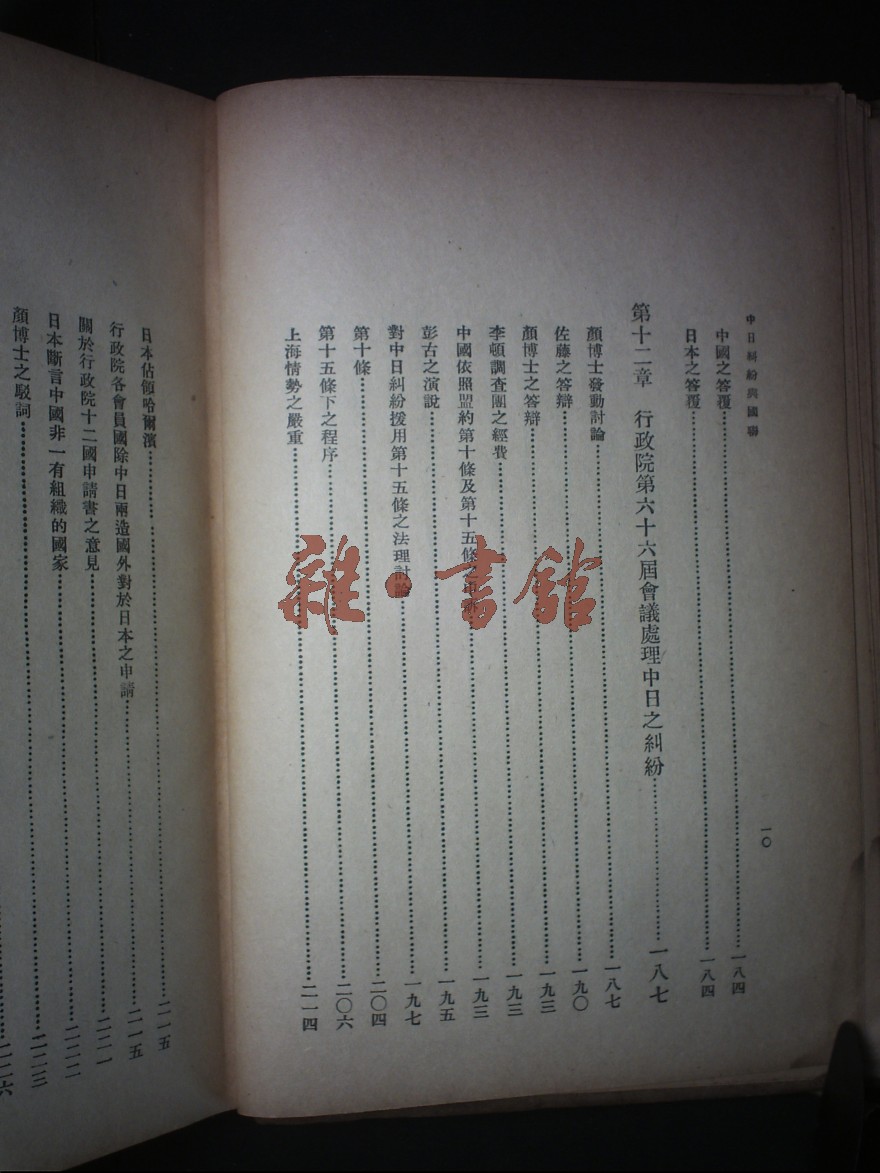 中日糾紛與國聯
一〇
中國之答覆……一八四
日本之答覆……一八四
第十二章　行政院第六十六屆會議處理中日之糾紛……一八七
顏博士發動討論……一八七
佐藤之答辯……一九〇
顏博士之答辯……一九三
李頓調查團之經費……一九三
中國依照盟約第十條及第十五條之申訴……一九三
彭古之演說……一九五
對中日糾紛援用第十五條之法理討論……一九七
第十條……二〇四
第十五條下之程序……二〇六
上海情勢之嚴重……二一四
日本佔領哈爾濱……二一五
行政院各會員國除中日兩造國外對於日本之申請……二一五
關於行政院十二國申請書之意見……二二一
日本斷言中國非一有組織的國家……二二二
顏博士之駁詞……二二三
二二六
雜·書館